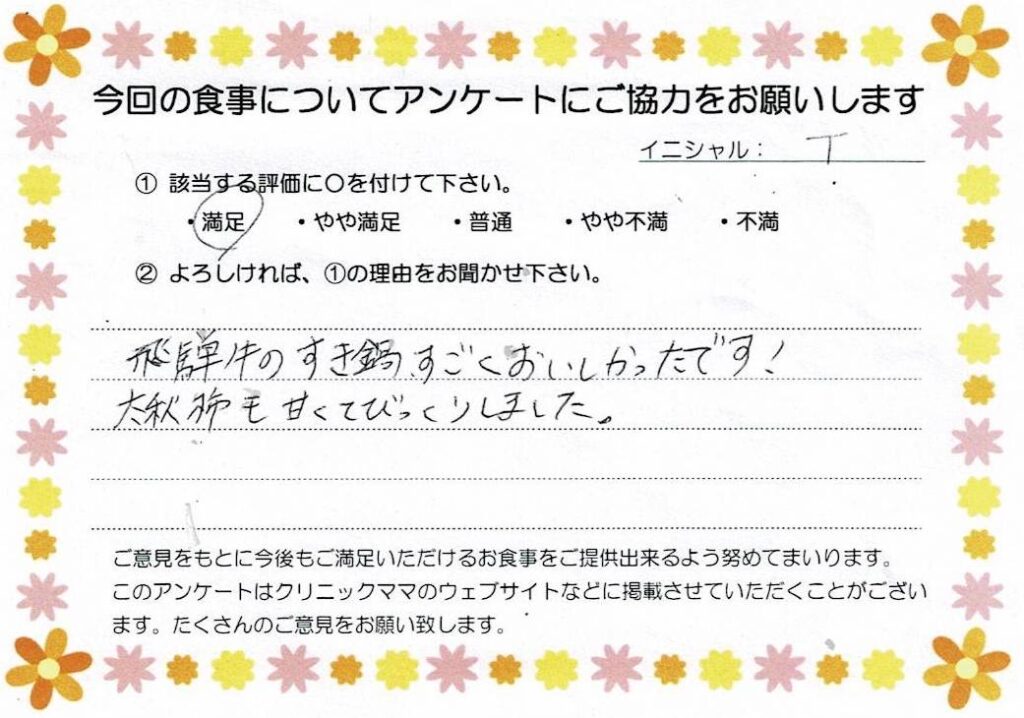 今回の食事についてアンケートにご協力をお願いします
イニシャル： T
① 該当する評価に〇を付けて下さい。
・満足 ・やや満足 ・普通 ・やや不満 ・不満
② よろしければ、①の理由をお聞かせ下さい。
飛騨牛のすき鍋、すごくおいしかったです！
太秋柿も甘くてびっくりしました。
ご意見をもとに今後もご満足いただけるお食事をご提供出来るよう努めてまいります。
このアンケートはクリニックママのウェブサイトなどに掲載させていただくことがござい
ます。たくさんのご意見をお願い致します。